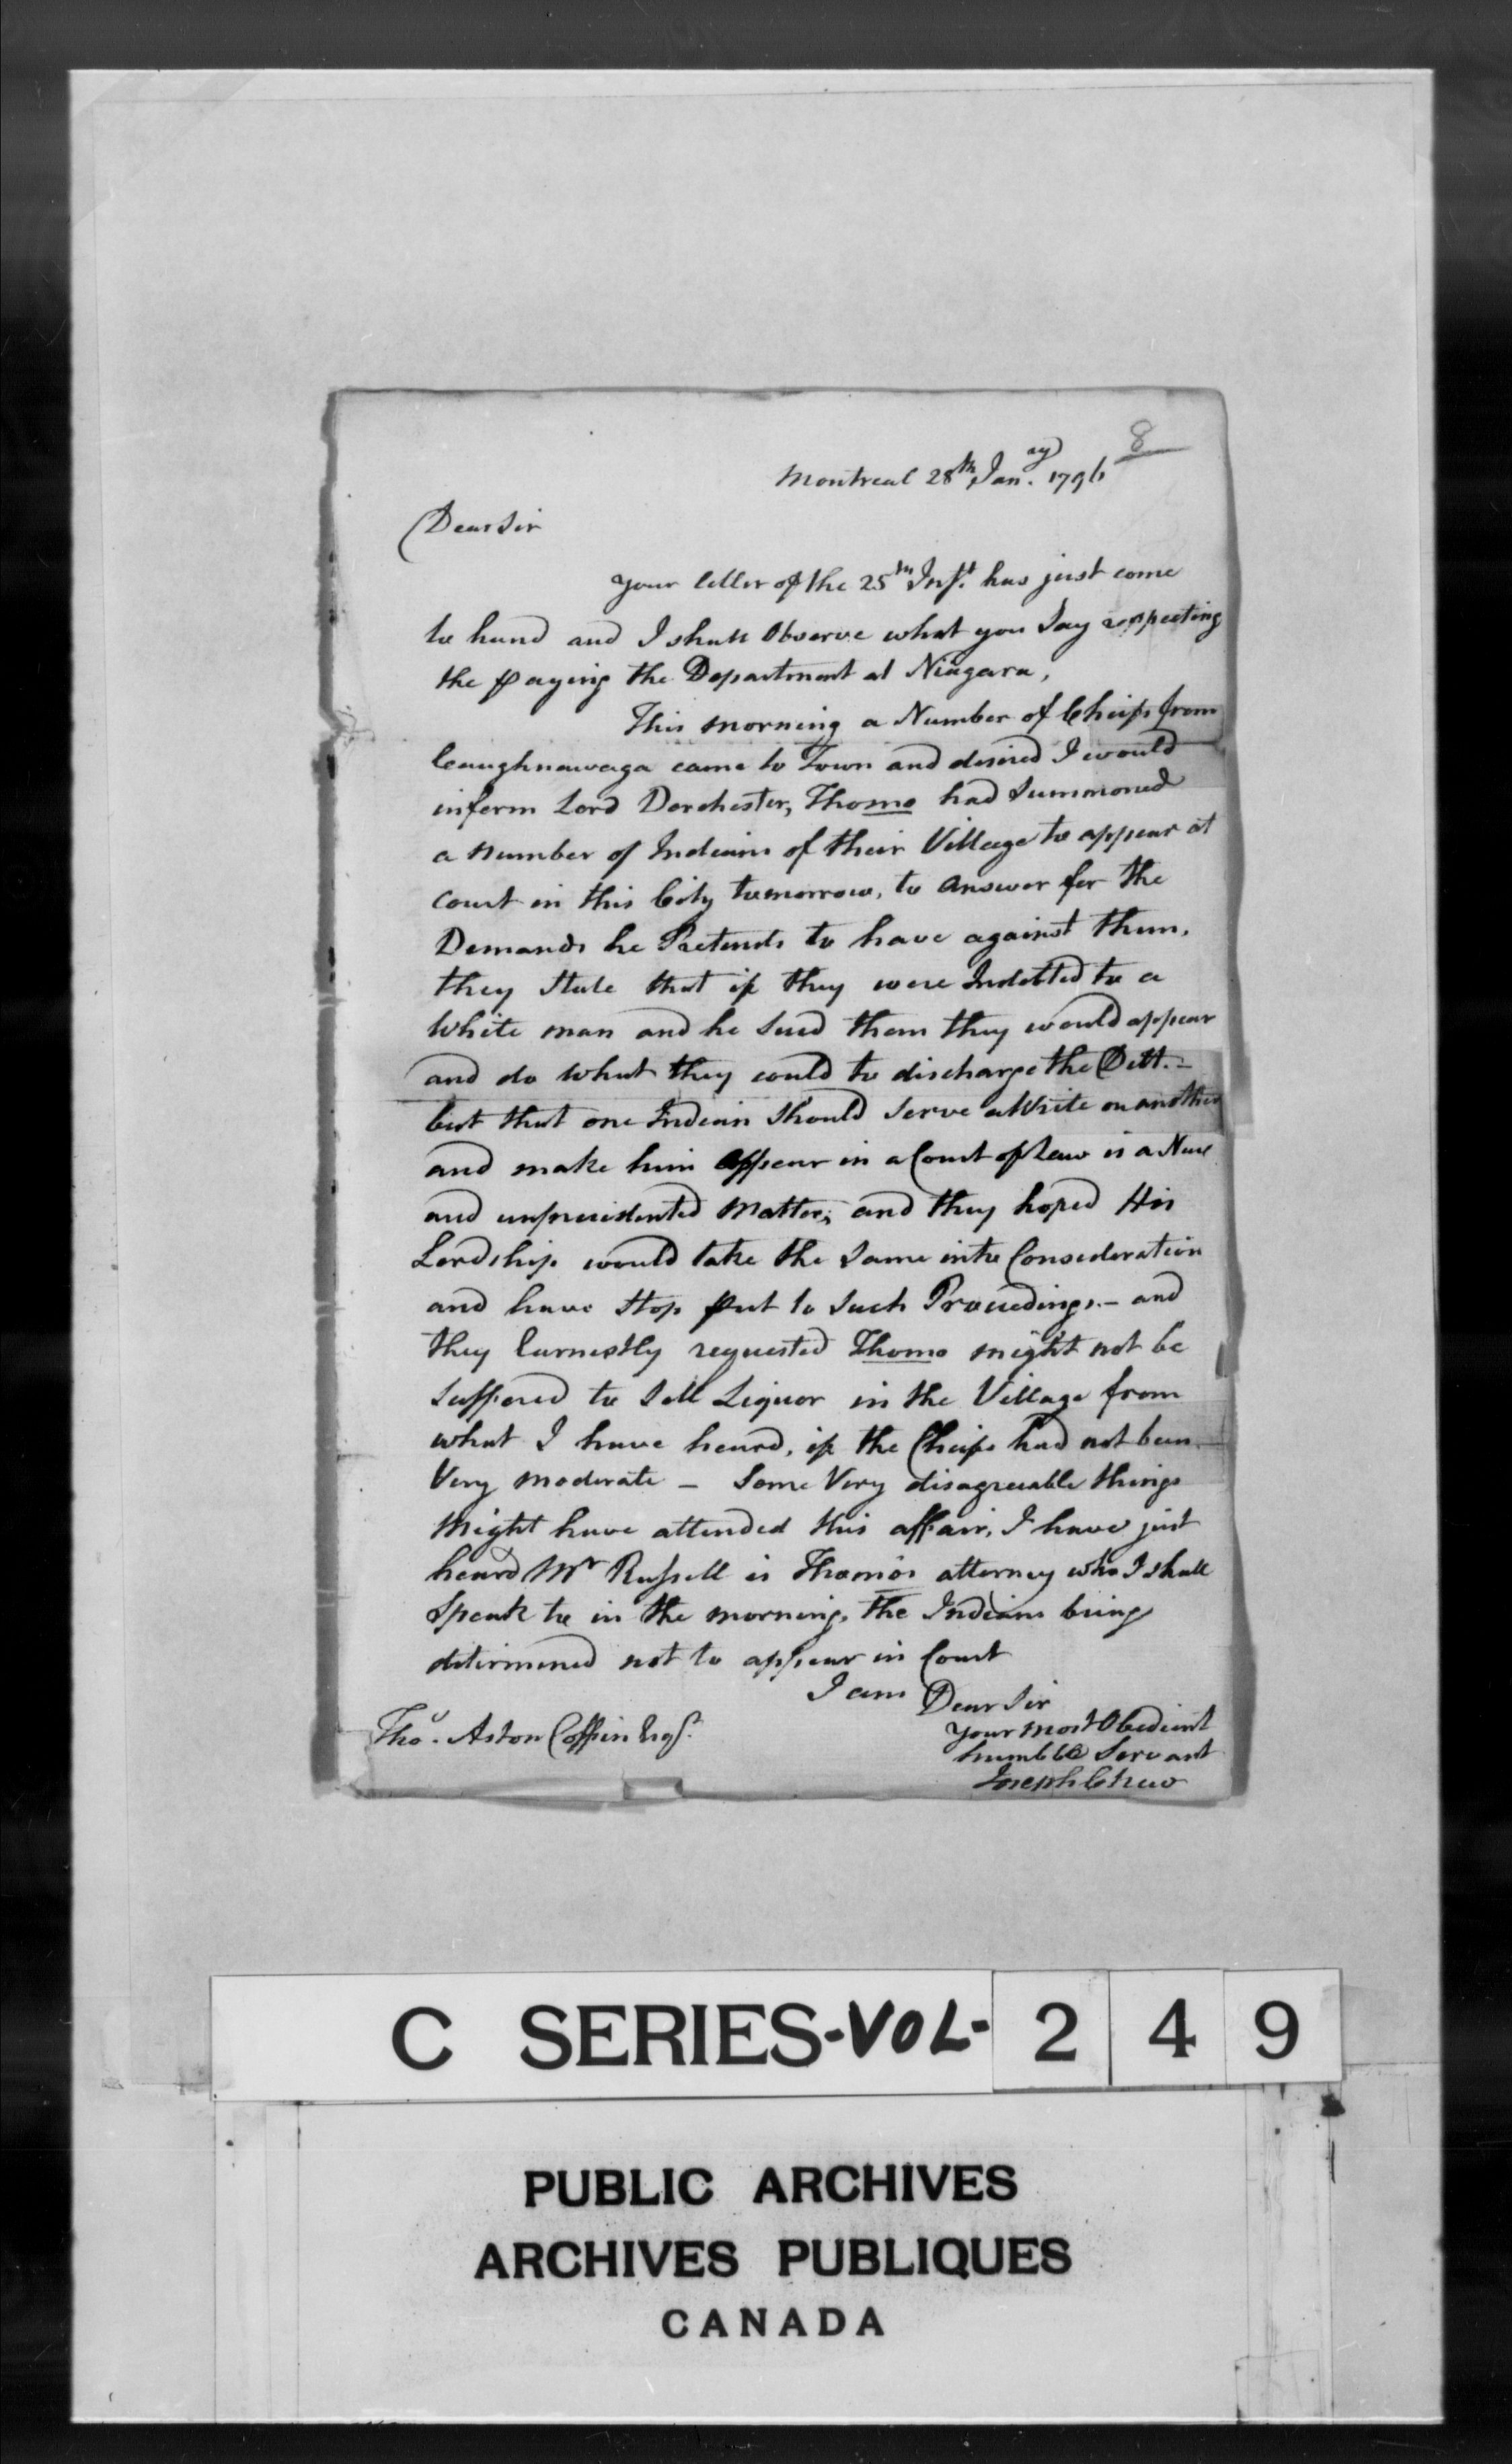 8
Montreal 28th Jan.ay 1796
Dear Sir
Your letter of the 25th Inst. has just come
to hand and I shall Observe what you Say respecting
the paying the Department at Niagara,
This morning a Number of Cheifs from
Caughnawaga came to Town and desired I would
inform Lord Dorchester, Thomo had Summoned
a number of Indians of their Village to appear at
Court in this City tomorrow, to answer for the
Demands he Pretends to have against them.
they State that if they were Indebted to a
White man and he Sued them they would appear
and do what they could to discharge the Debt. —
but that one Indian Should Serve a Write on another
and make him appear in a Court of Law is a New
and unprecidented Matter; and they hoped His
Lordship would take the Same into Consederation
and have Stop put to Such Proceedings. — and
they Earnestly requested Thomo might not be
Suffered to Sell Liquor in the Village from
what I have heard, if the Cheifs had not been
Very moderate — Some Very disagreeable things
Might have attended this affair, I have just
heard Mr Russell is Thomo's attorney who I shall
Speak to in the morning, the Indians being
determined not to appear in Court
I am Dear Sir
Your most Obedient
humble Servant
Joseph Chew
Thos. Aston Coffin Esqr.
C SERIES-VOL- 2 4 9
PUBLIC ARCHIVES
ARCHIVES PUBLIQUES
CANADA